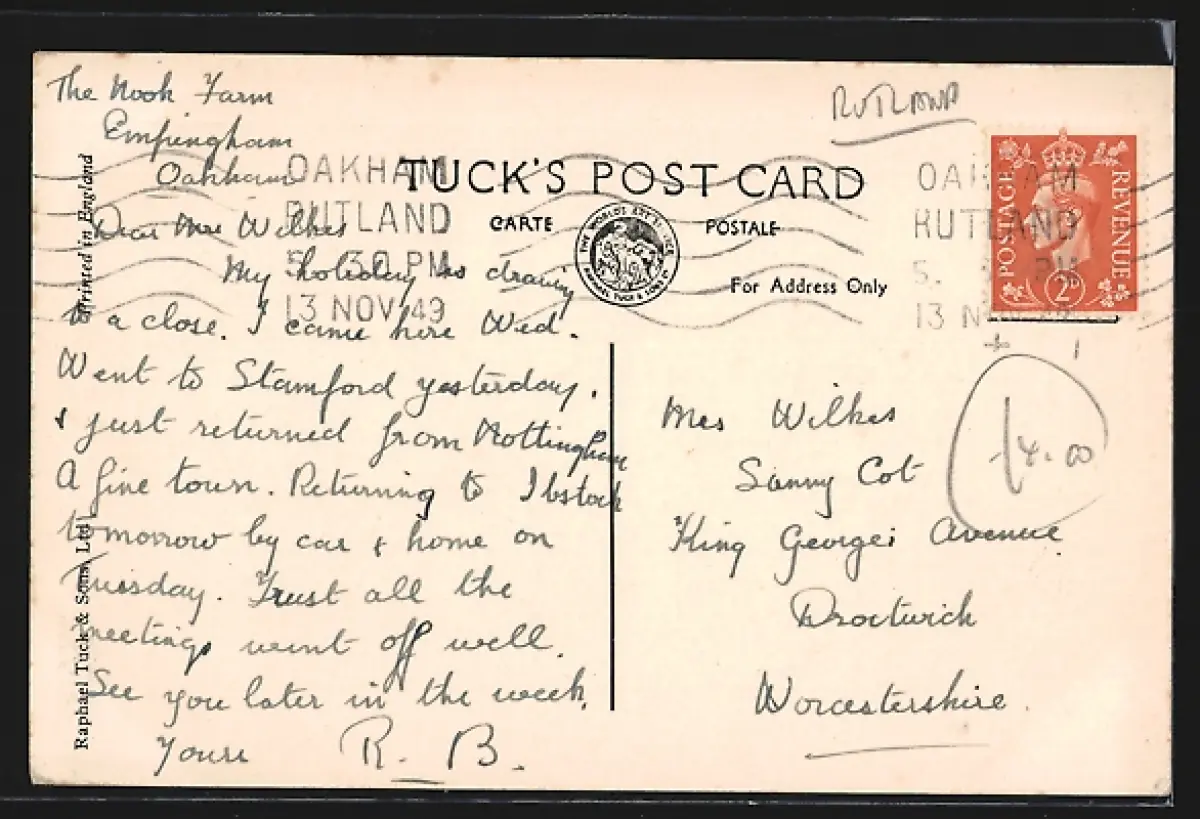 The Nook Farm
Empingham
Oakham
Dear Mrs Wilkes
My holiday is drawing
to a close. I came here Wed.
Went to Stamford yesterday.
& just returned from Nottingham
A fine town. Returning to Ibstock
tomorrow by car & home on
Tuesday. Trust all the
meetings went off well.
See you later in the week.
Yours R. B.
Printed in England
Raphael Tuck & Sons, Ltd.
TUCK'S POST CARD
CARTE POSTALE
THE WORLD'S ART SERVICE
RAPHAEL TUCK & SONS LTD
For Address Only
OAKHAM
RUTLAND
5. 30 PM
13 NOV 49
RUTLAND
OAKHAM
RUTLAND
5. PM
13 NOV 49
POSTAGE REVENUE
2D
4.00
Mrs Wilkes
Sunny Cot
King Georges Avenue
Droitwich
Worcestershire.